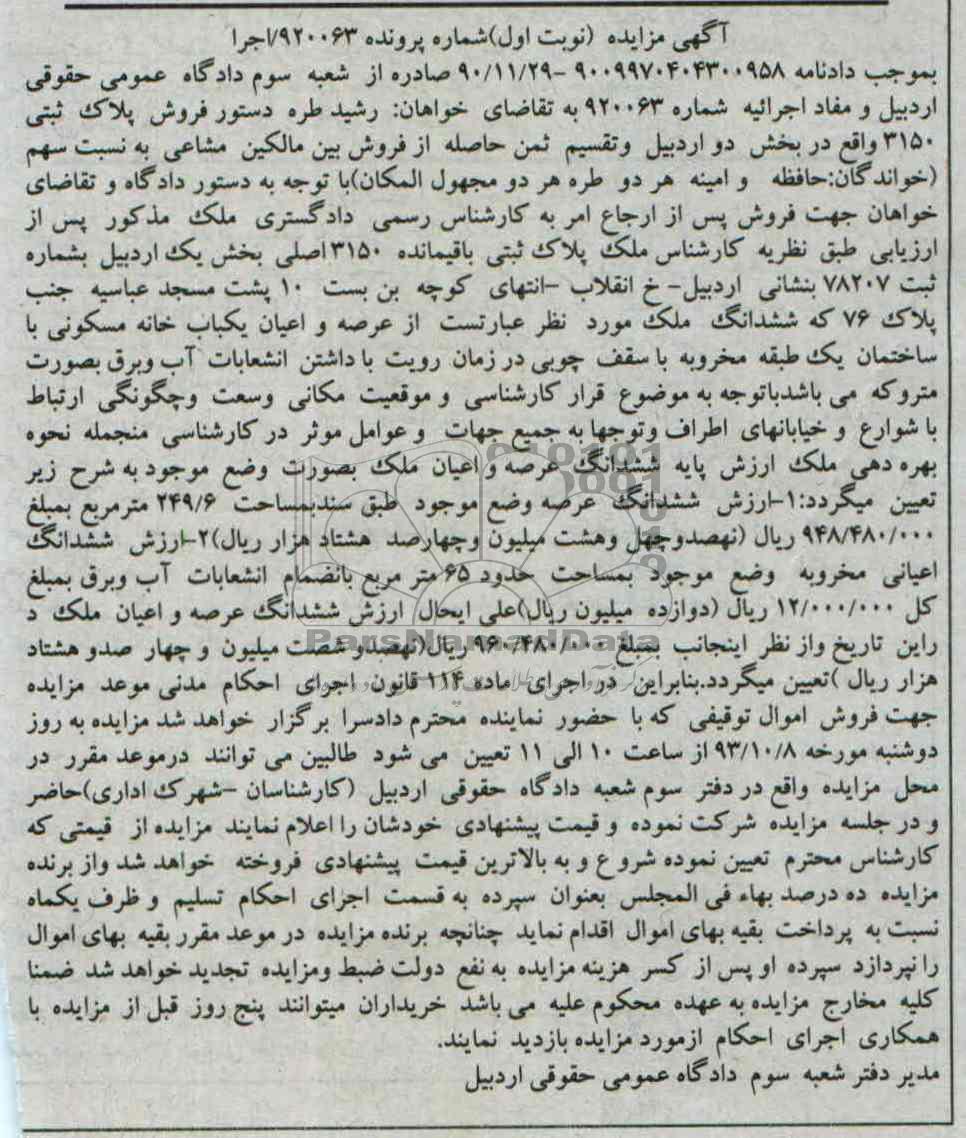 آگهی مزایده (نوبت اول)شماره پرونده ۹۲۰۰۶۳/اجرا
بموجب دادنامه ۹۰۰۹۹۷۰۴۰۴۳۰۰۹۵۸ -۹۰/۱۱/۲۹ صادره از شعبه سوم دادگاه عمومی حقوقی
اردبیل و مفاد اجرائیه شماره ۹۲۰۰۶۳ به تقاضای خواهان: رشید طره دستور فروش پلاک ثبتی
۳۱۵۰ واقع در بخش دو اردبیل وتقسیم ثمن حاصله از فروش بین مالکین مشاعی به نسبت سهم
(خواندگان:حافظه و امینه هر دو طره هر دو مجهول المکان)با توجه به دستور دادگاه و تقاضای
خواهان جهت فروش پس از ارجاع امر به کارشناس رسمی دادگستری ملک مذکور پس از
ارزیابی طبق نظریه کارشناس ملک پلاک ثبتی باقیمانده ۳۱۵۰ اصلی بخش یک اردبیل بشماره
ثبت ۷۸۲۰۷ بنشانی اردبیل- خ انقلاب -انتهای کوچه بن بست ۱۰ پشت مسجد عباسیه جنب
پلاک ۷۶ که ششدانگ ملک مورد نظر عبارتست از عرصه و اعیان یکباب خانه مسکونی با
ساختمان یک طبقه مخروبه با سقف چوبی در زمان رویت با داشتن انشعابات آب وبرق بصورت
متروکه می باشدباتوجه به موضوع قرار کارشناسی و موقعیت مکانی وسعت وچگونگی ارتباط
با شوارع و خیابانهای اطراف وتوجها به جمیع جهات و عوامل موثر در کارشناسی منجمله نحوه
بهره دهی ملک ارزش پایه ششدانگ عرصه و اعیان ملک بصورت وضع موجود به شرح زیر
تعیین میگردد:۱-ارزش ششدانگ عرصه وضع موجود طبق سندبمساحت ۲۴۹/۶ مترمربع بمبلغ
۹۴۸/۴۸۰/۰۰۰ ریال (نهصدوچهل وهشت میلیون وچهارصد هشتاد هزار ریال)۲-ارزش ششدانگ
اعیانی مخروبه وضع موجود بمساحت حدود ۶۵ متر مربع بانضمام انشعابات آب وبرق بمبلغ
کل ۱۲/۰۰۰/۰۰۰ ریال (دوازده میلیون ریال)علی ایحال ارزش ششدانگ عرصه و اعیان ملک د
راین تاریخ واز نظر اینجانب بمبلغ ۹۶۰/۴۸۰/۰۰۰ ریال(نهصدو شصت میلیون و چهار صدو هشتاد
هزار ریال )تعیین میگردد.بنابراین در اجرای ماده ۱۱۴ قانون اجرای احکام مدنی موعد مزایده
جهت فروش اموال توقیفی که با حضور نماینده محترم دادسرا برگزار خواهد شد مزایده به روز
دوشنبه مورخه ۹۳/۱۰/۸ از ساعت ۱۰ الی ۱۱ تعیین می شود طالبین می توانند درموعد مقرر در
محل مزایده واقع در دفتر سوم شعبه دادگاه حقوقی اردبیل (کارشناسان -شهرک اداری)حاضر
و در جلسه مزایده شرکت نموده و قیمت پیشنهادی خودشان را اعلام نمایند مزایده از قیمتی که
کارشناس محترم تعیین نموده شروع و به بالاترین قیمت پیشنهادی فروخته خواهد شد واز برنده
مزایده ده درصد بهاء فی المجلس بعنوان سپرده به قسمت اجرای احکام تسلیم و ظرف یکماه
نسبت به پرداخت بقیه بهای اموال اقدام نماید چنانچه برنده مزایده در موعد مقرر بقیه بهای اموال
را نپردازد سپرده او پس از کسر هزینه مزایده به نفع دولت ضبط ومزایده تجدید خواهد شد ضمنا
کلیه مخارج مزایده به عهده محکوم علیه می باشد خریداران میتوانند پنج روز قبل از مزایده با
همکاری اجرای احکام ازمورد مزایده بازدید نمایند.
مدیر دفتر شعبه سوم دادگاه عمومی حقوقی اردبیل
ParsNamadData